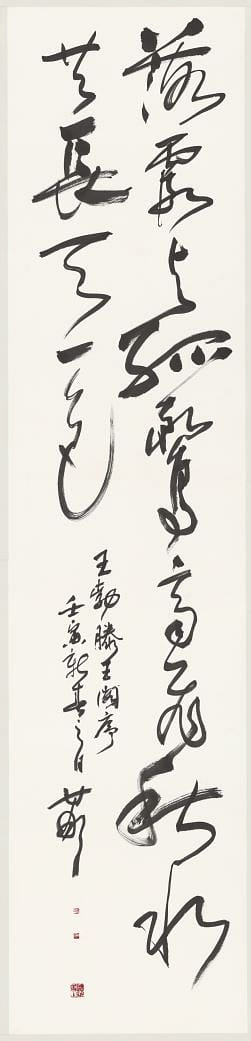 落霞与孤鶩齊飛秋水
共長天一色
王勃滕王阁序
壬寅新春之日